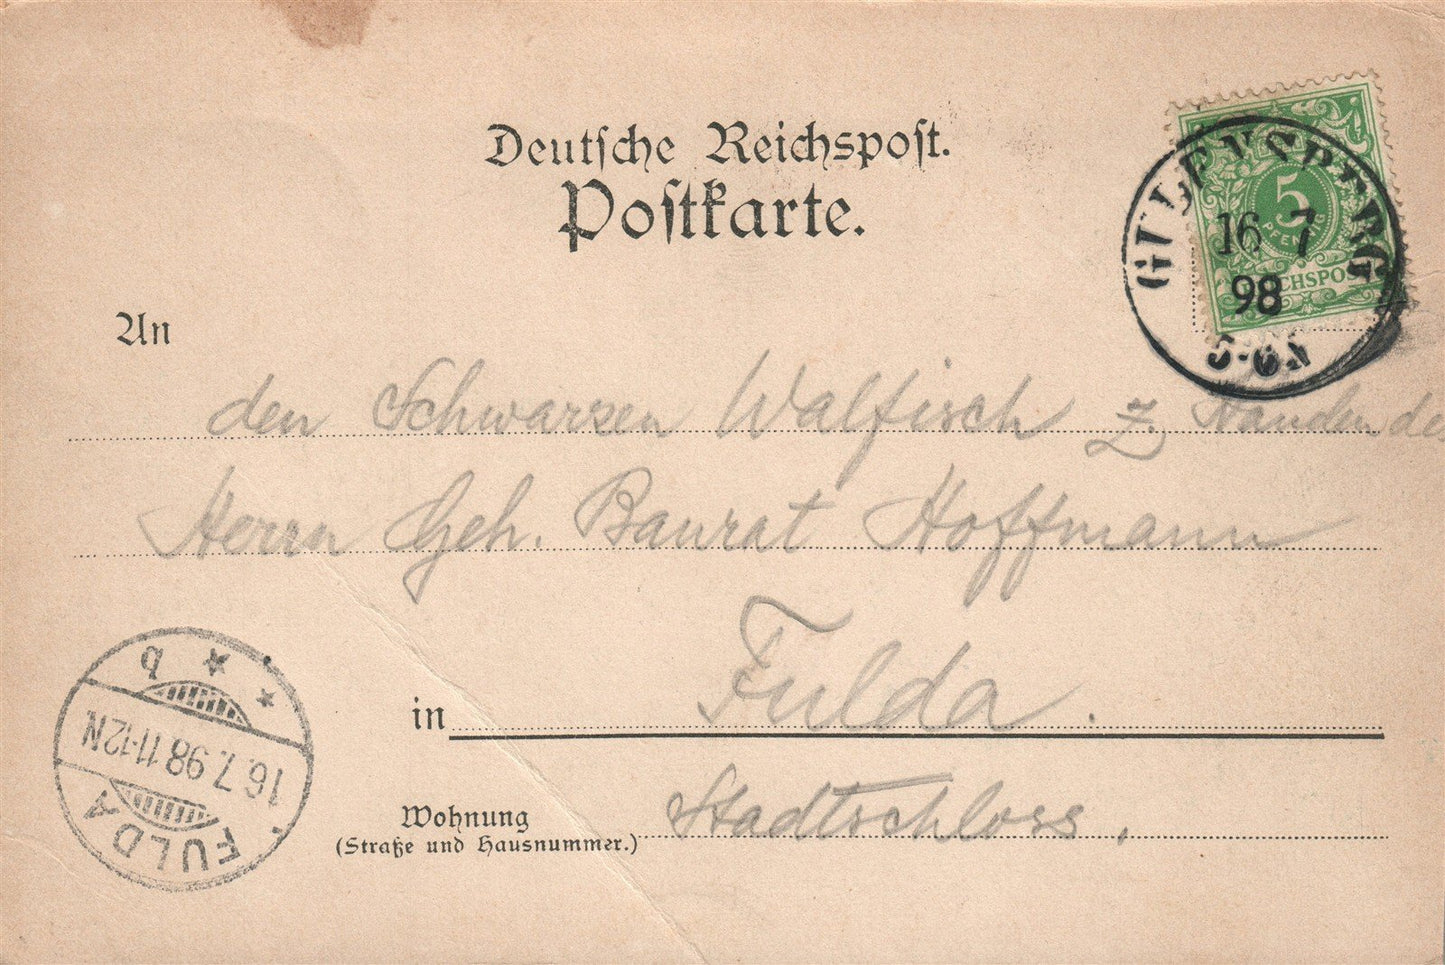 Deutsche Reichspost.
Postkarte.
5
PFENNIG
REICHSPOST
16 7
98
An
den Schwarzen Walfisch z. Handen des
Herrn Geh. Baurat Hoffmann
in Fulda.
Wohnung
(Straße und Hausnummer.)
Stadtschloss,
FULDA
16.7.98 11-12N
* * b